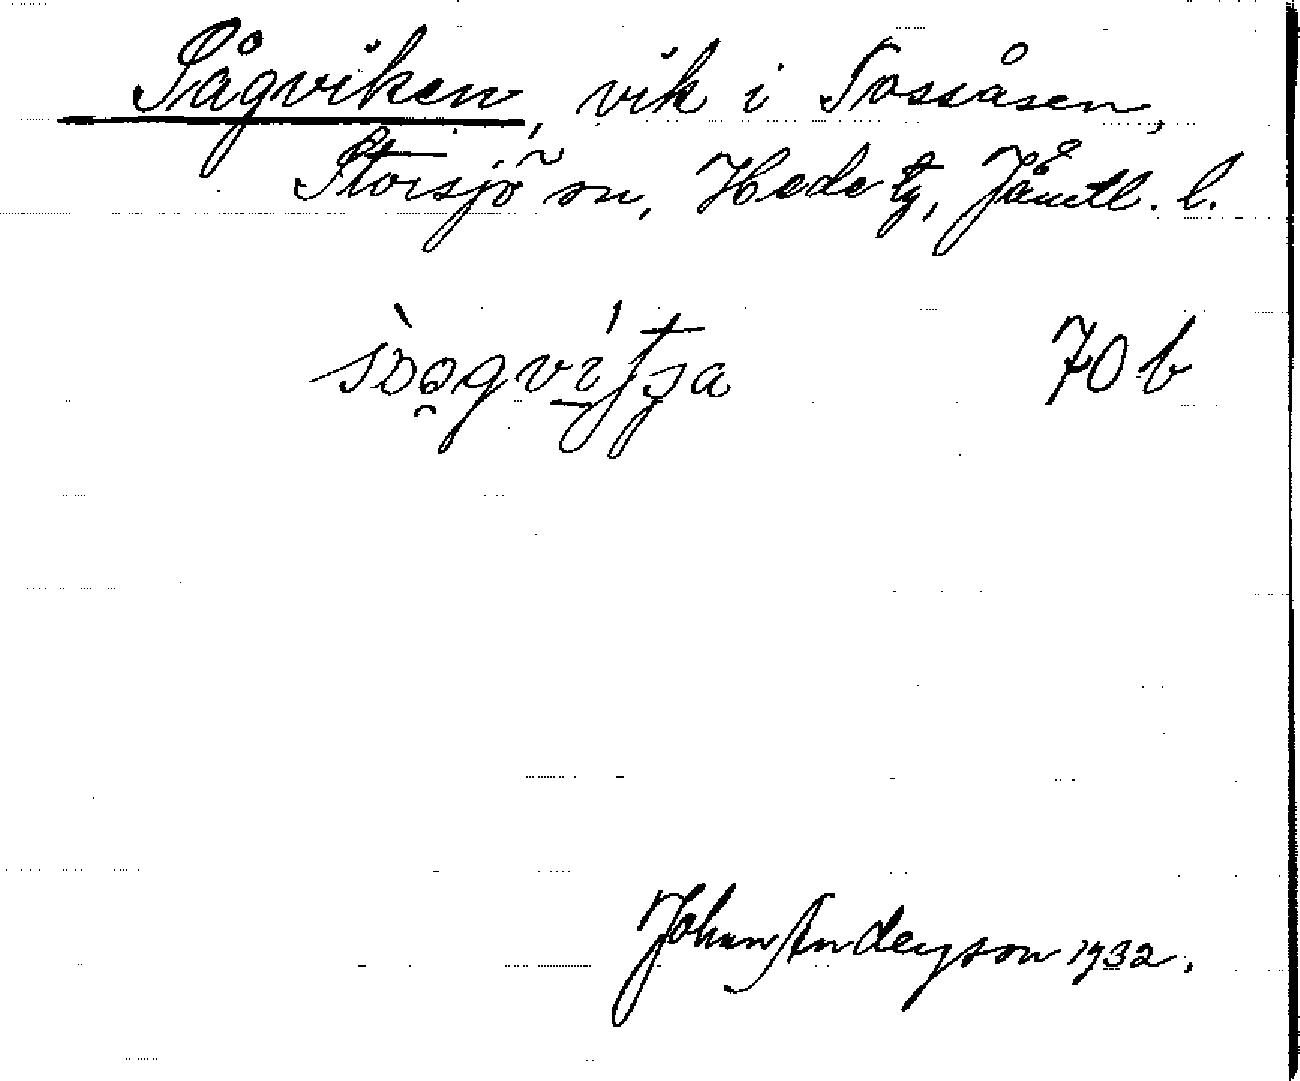 Sågviken, vik i Tossåsen,
Storsjö sn, Hede tg, Jämtl. l.
70 b
Johan Anderson 1932.